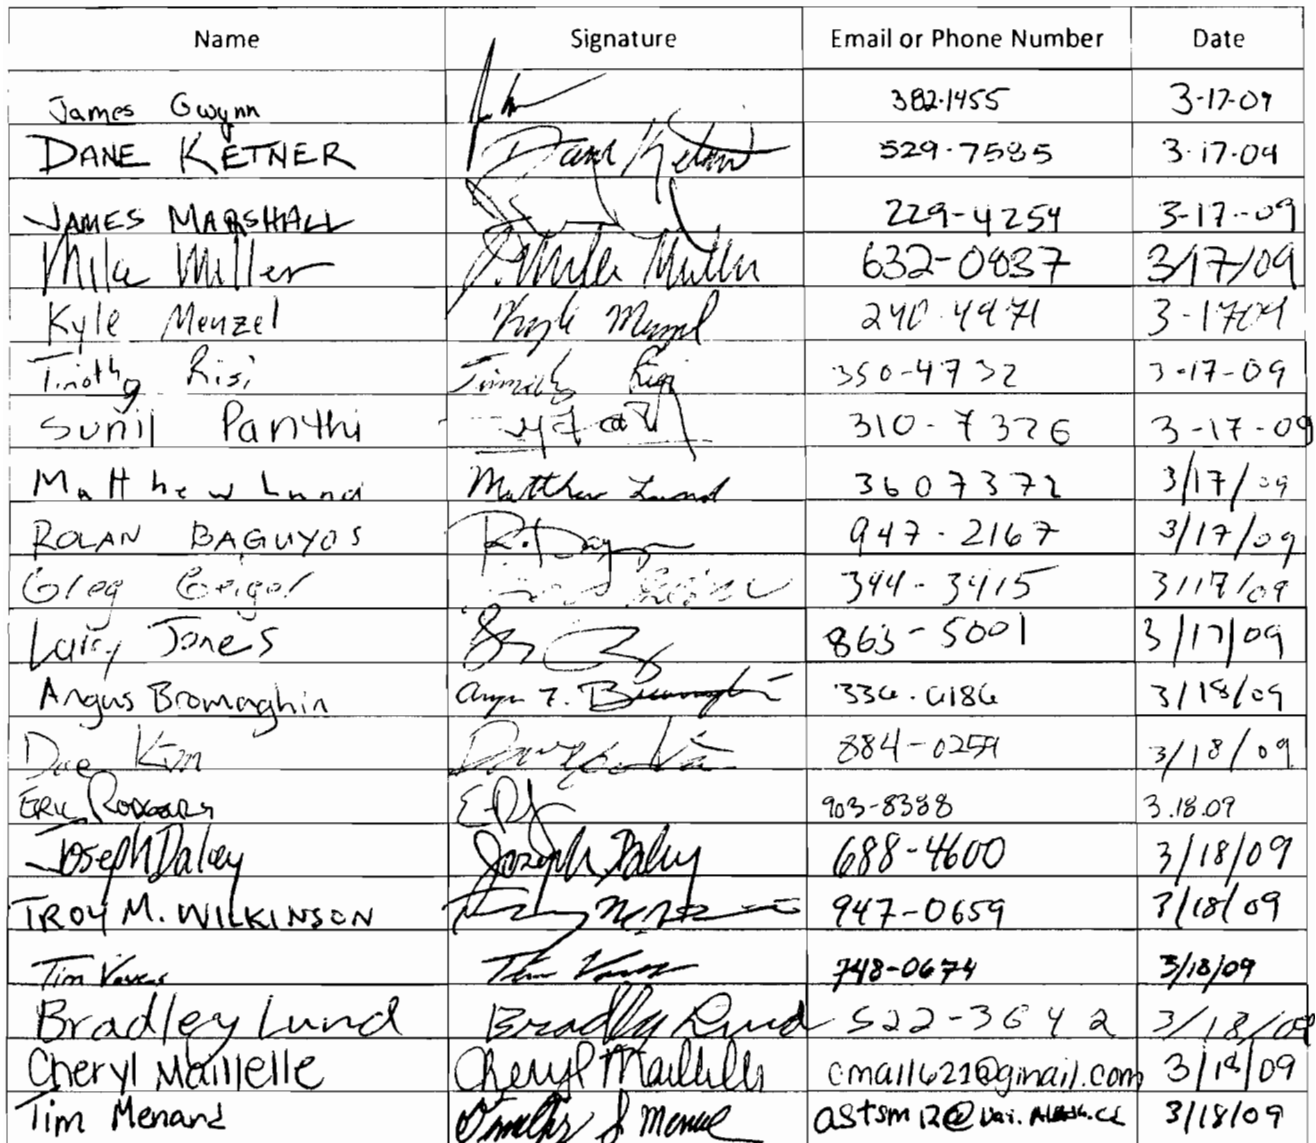 Name Signature Email or Phone Number Date
James Gwynn 382-1455 3-17-09
DANE KETNER Dane Ketner 529-7585 3-17-09
JAMES MARSHALL 229-4254 3-17-09
Mike Miller J. Mike Miller 632-0837 3/17/09
Kyle Menzel Kyle Menzel 240-4971 3-1709
Timothy Risi Timothy Risi 350-4732 3-17-09
Sunil Panthi 310-7326 3-17-09
Matthew Lund Matthew Lund 3607372 3/17/09
ROLAN BAGUYOS 947-2167 3/17/09
Greg Geiger 344-3415 3/17/09
Larry Jones 863-5001 3/17/09
Angus Bromaghin Angus F. Bromaghin 336.6186 3/18/09
Dae Kim 884-0259 3/18/09
ERIC RODGERS 903-8388 3.18.09
Joseph Daley Joseph Daley 688-4600 3/18/09
TROY M. WILKINSON 947-0659 3/18/09
Tim 748-0674 3/18/09
Bradley Lund Bradley Lund 522-3642 3/18/09
Cheryl Maillelle Cheryl Maillelle cmail1621@gmail.com 3/18/09
Tim Menard 3/18/09